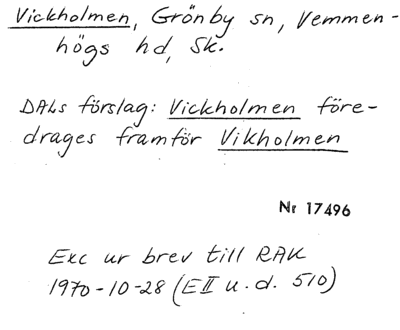 Vickholmen, Grönby sn, Vemmen-
högs hd, Sk.
DALs förslag: Vickholmen före-
drages framför Vikholmen
Nr 17496
Exc ur brev till RAK
1970-10-28 (EII u.d. 510)